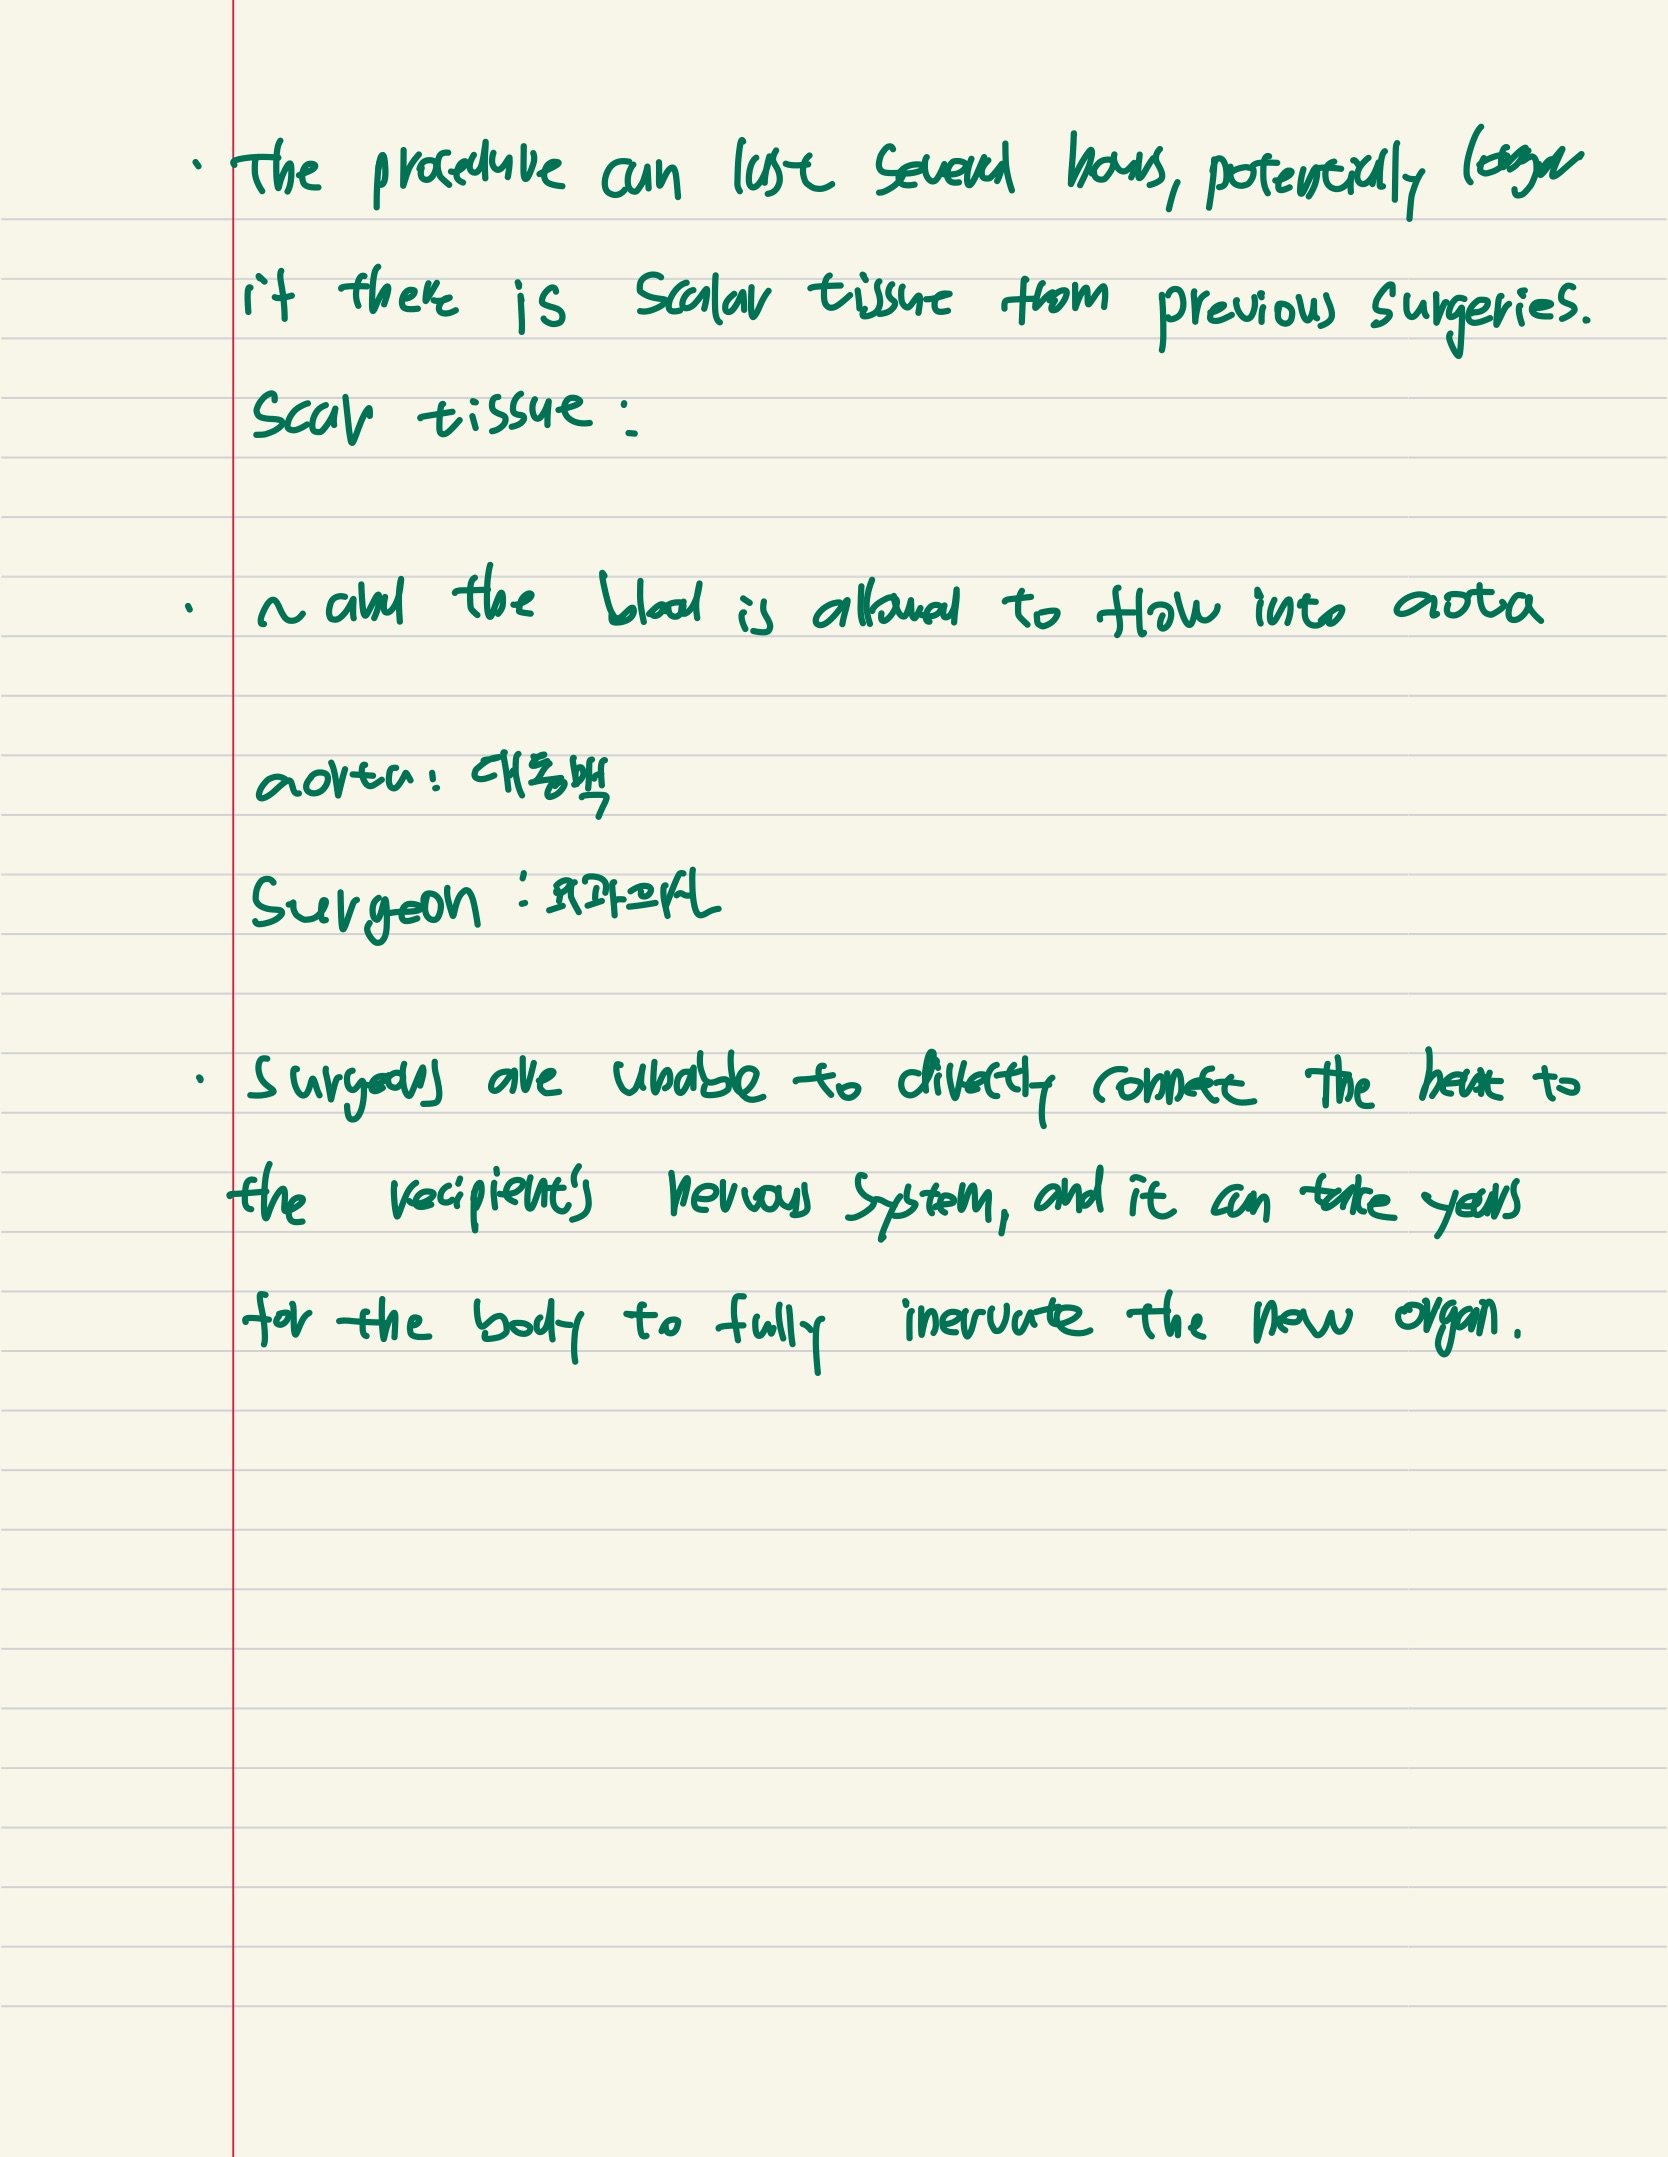 · The procedure can last several hours, potentially longer
if there is scalar tissue from previous surgeries.
Scar tissue :
· ~ and the blood is allowed to flow into aota
aorta : 대동맥
Surgeon : 외과의사
· Surgeons are unable to directly connect the heart to
the recipient's nervous system, and it can take years
for the body to fully inervate the new organ.